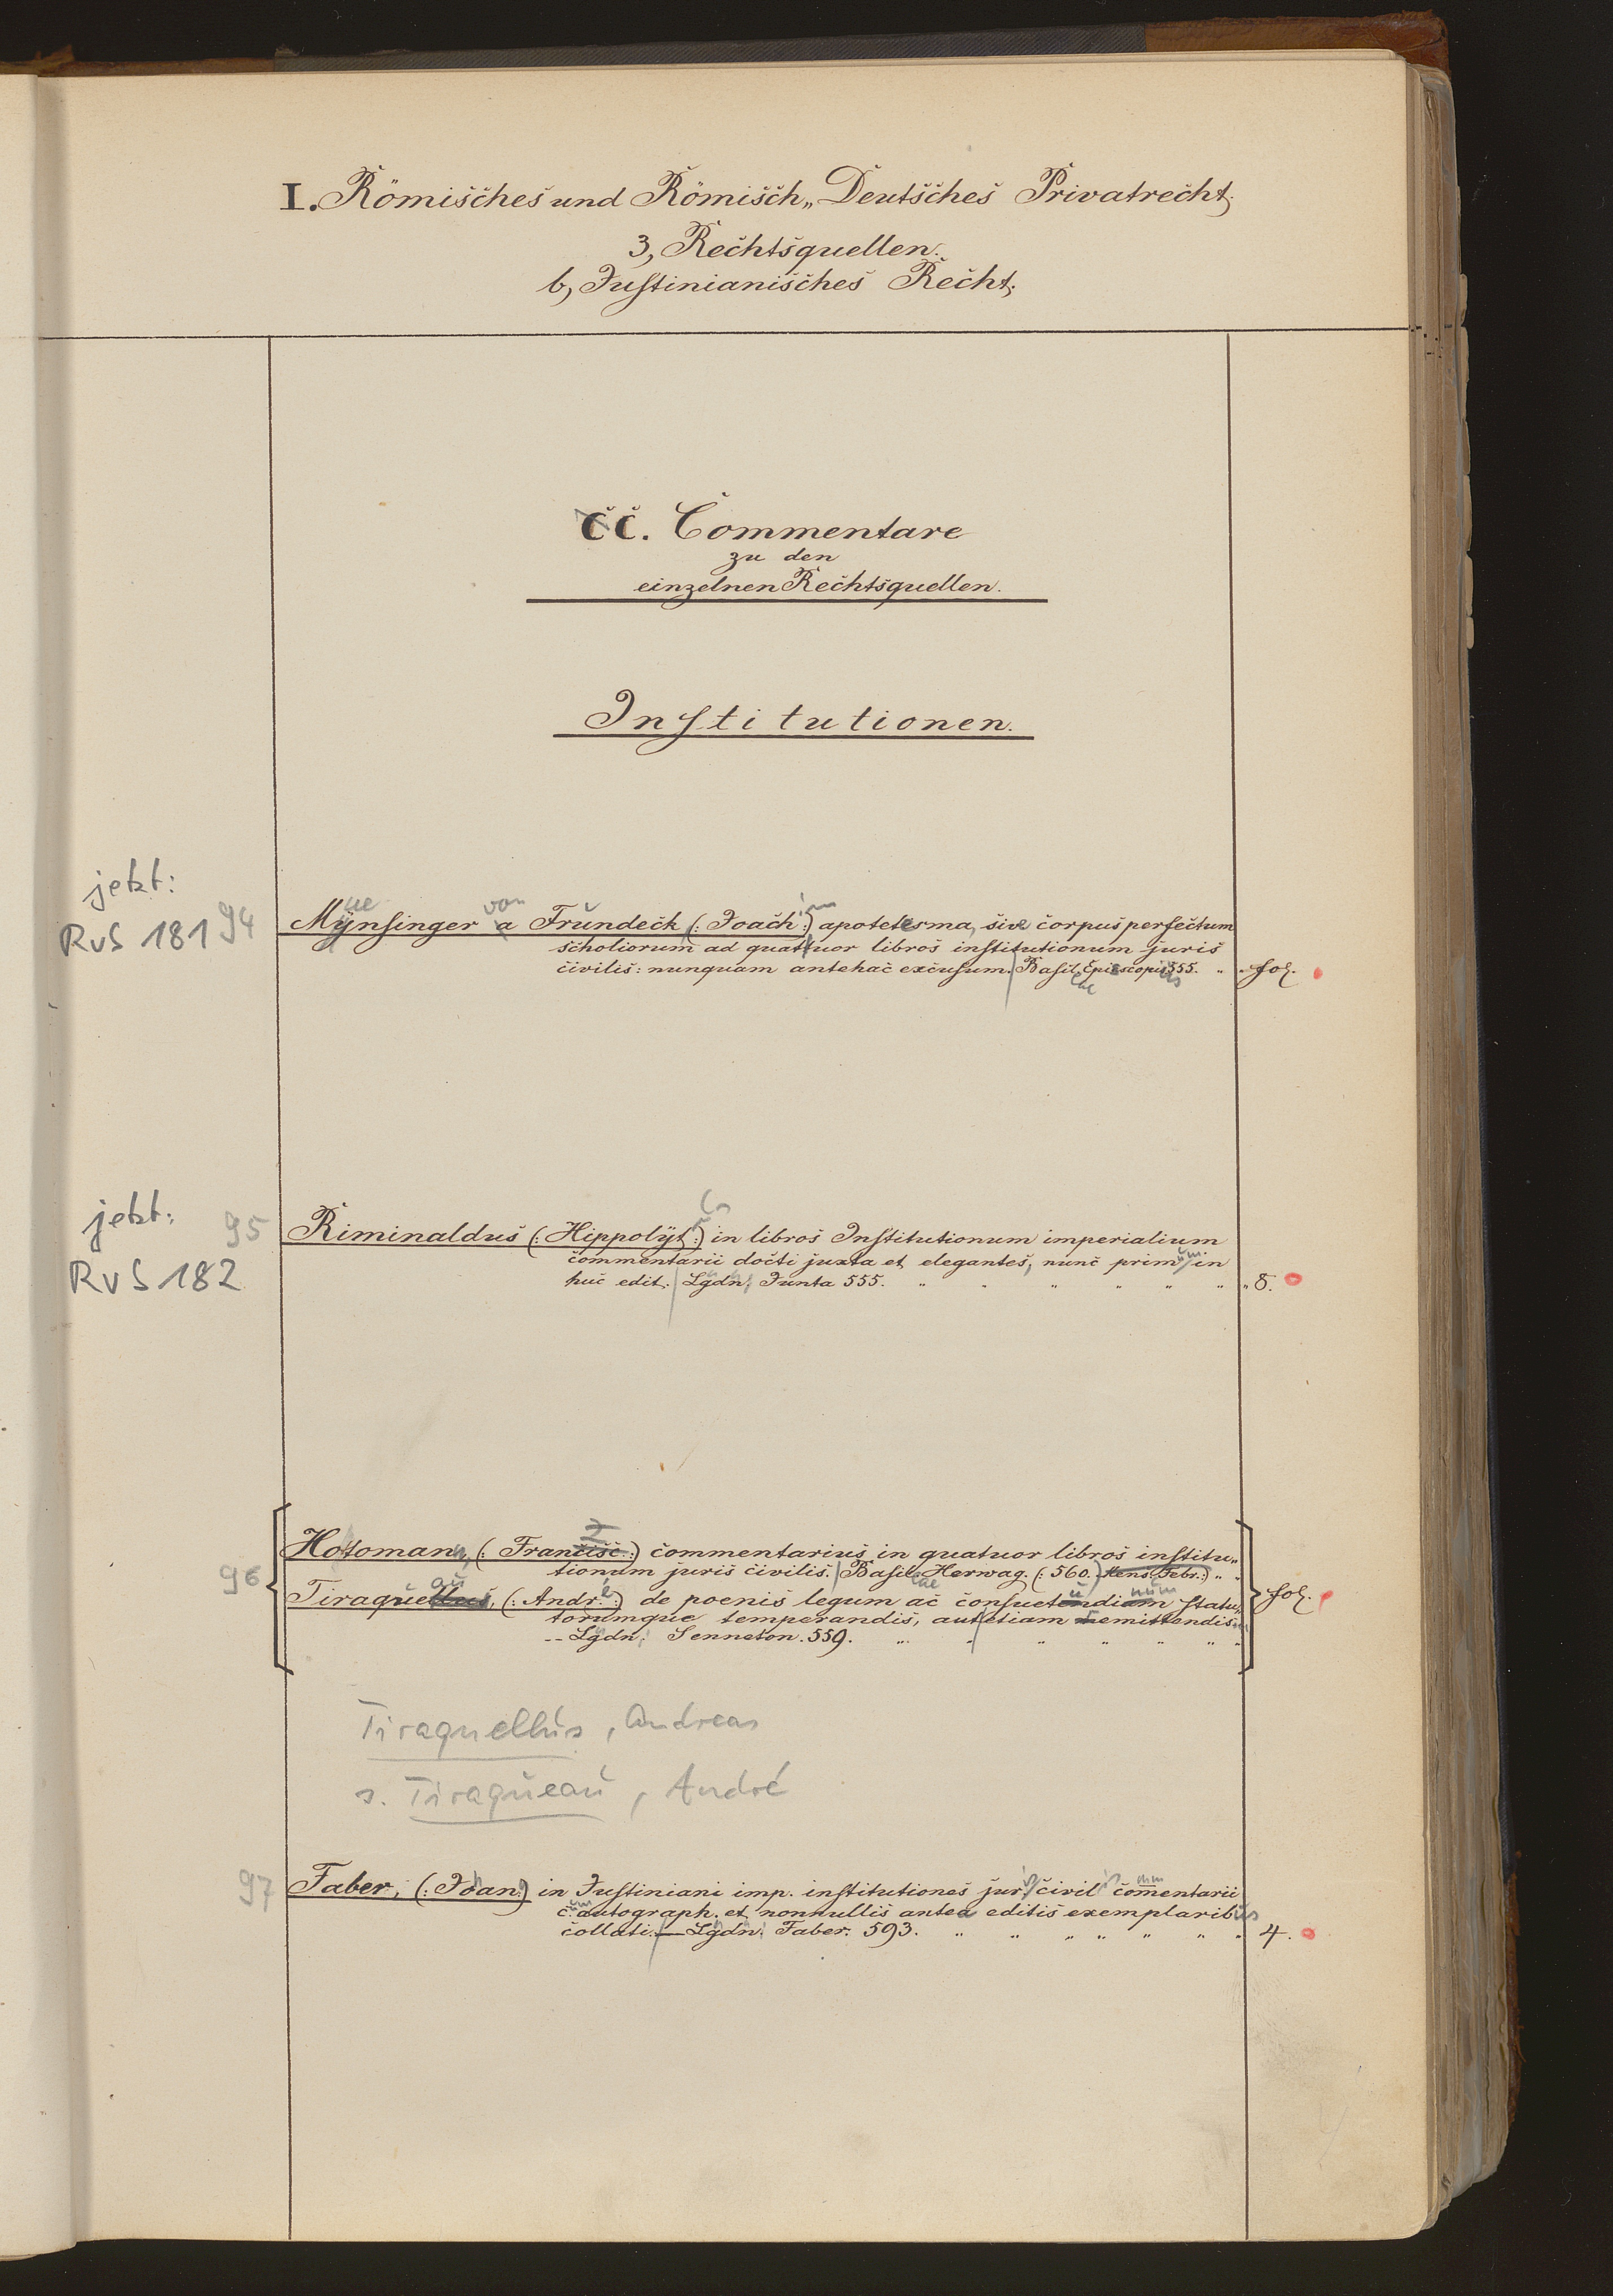 I. Römisches und Römisch„Deutsches Privatrecht.
3, Rechtsquellen.
b, Justinianisches Recht.
CC. Commentare
zu den
einzelnen Rechtsquellen.
Institutionen.
jetzt:
RvS 181 94 Mynsinger a Frundeck (: Joach :) apotelesma, sive corpus perfectum
scholiorum ad quattuor libros institutionum juris
civilis: nunquam antehac excusum. Basil. Episcopius 555. „ fol.
jetzt:
RvS 182 95 Riminaldus (: Hippolyt :) in libros Institutionum imperialium
commentarii docti juxta et elegantes, nunc primum in
huc edit. Lgdn. Junta 555. „ „ „ „ „ „ 8.
96 Hotoman, (: Francisc. :) commentarius in quatuor libros institu„
tionum juris civilis. Basil. Herwag. (: 560. Mens. Febr. :) „ „
Tiraquellus, (: Andr. :) de poenis legum ac consuetudinum statu„
torumque temperandis, aut etiam remittendis
-- Lgdn. Senneton. 559. „ „ „ „ „ „ fol.
Tiraquellus, Andreas
s. Tiraqueau, André
97 Faber, (: Johan :) in Justiniani imp. institutiones juris civilis commentarii
cum autograph. et nonnullis antea editis exemplaribus
collati. — Lgdn. Faber. 593. „ „ „ „ „ „ 4.